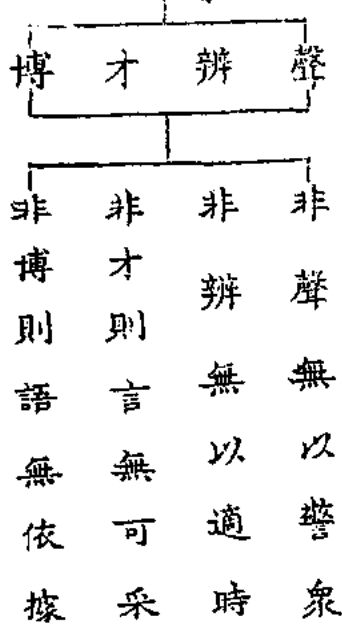 聲
辨
才
博
非聲無以警衆
非辨無以適時
非才則言無可采
非博則語無依據